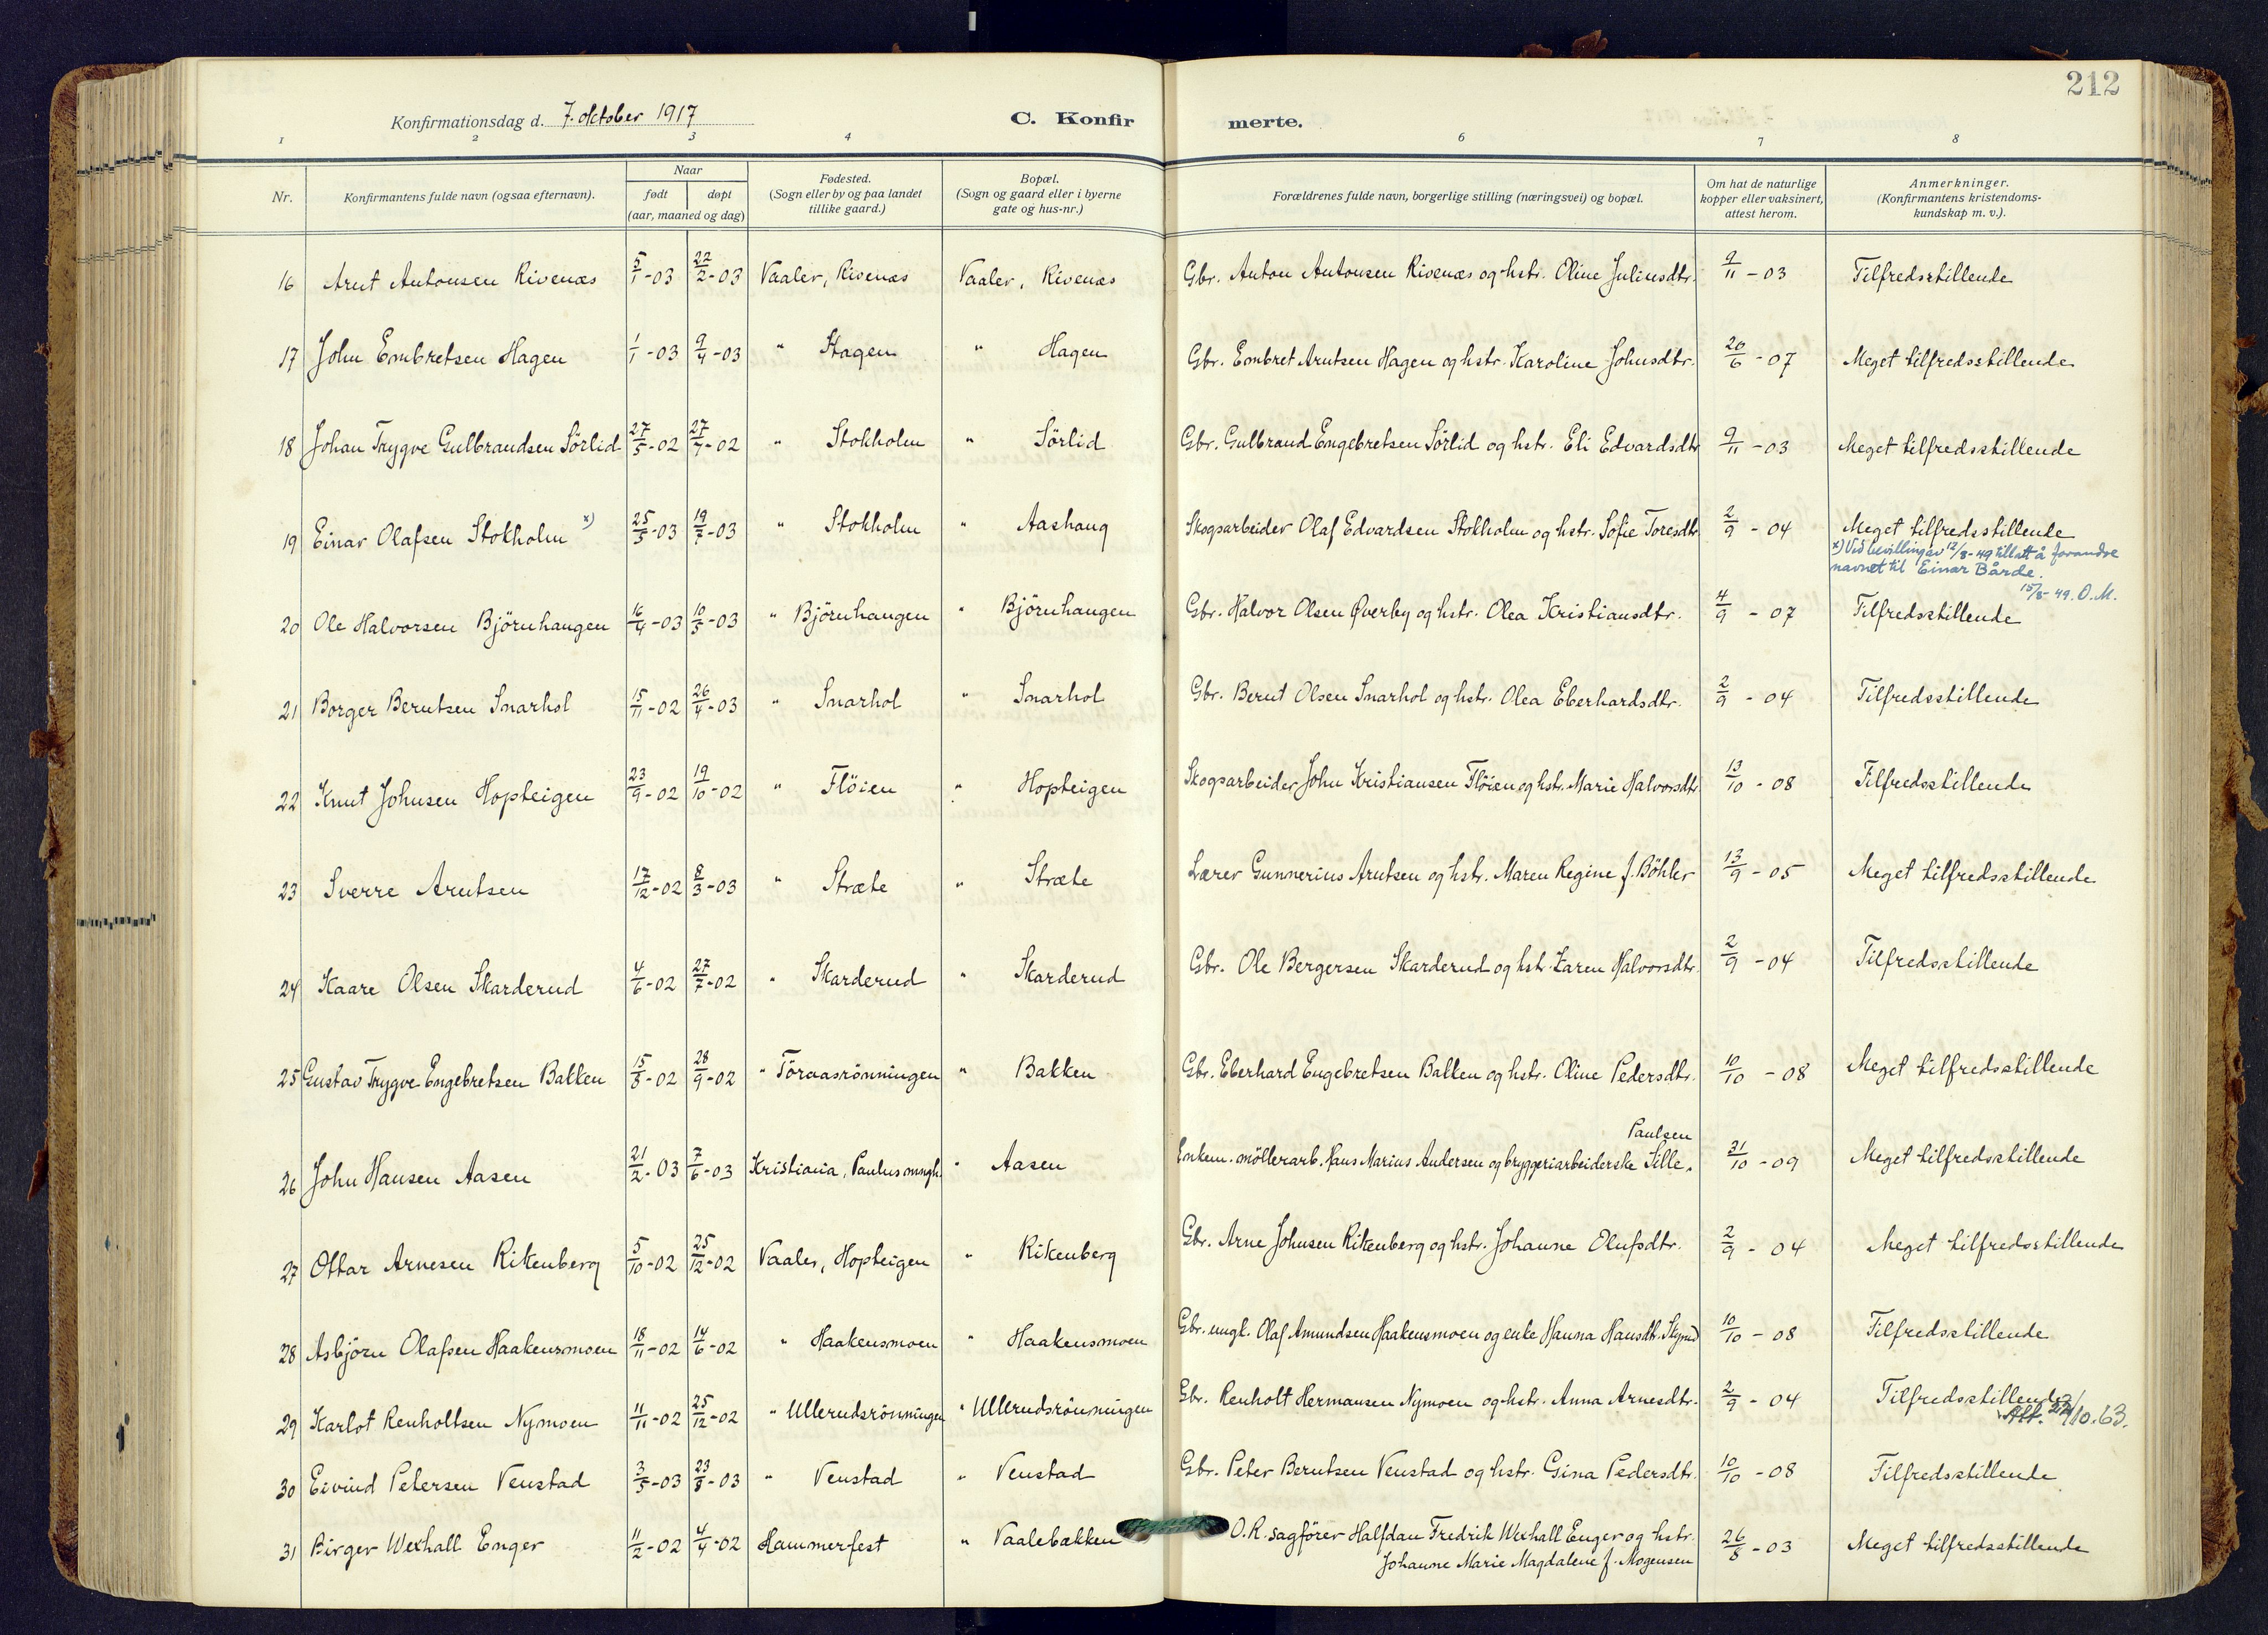 212
Konfirmationsdag d. 7. oktober 1917
C. Konfirmerte.
1 2 3 4 6 7 8
Nr.
Konfirmantens fulde navn (ogsaa efternavn).
Naar
født
døpt
(aar, maaned og dag)
Fødested.
(Sogn eller by og paa landet
tillike gaard.)
Bopæl.
(Sogn og gaard eller i byerne
gate og hus-nr.)
Forældrenes fulde navn, borgerlige stilling (næringsvei) og bopæl.
Om hat de naturlige
kopper eller vaksinert,
attest herom.
Anmerkninger.
(Konfirmantens kristendoms-
kundskap m. v.).
16 Arnt Antonsen Rivenæs 5/1-03 22/2-03 Vaaler, Rivenæs Vaaler, Rivenæs Gbr. Anton Antonsen Rivenæs og hstr. Oline Juliusdtr. 9/11-03 Tilfredsstillende
17 John Embretsen Hagen 1/1-03 9/4-03 " Hagen " Hagen Gbr. Embret Arntsen Hagen og hstr. Karoline Johnsdtr. 20/6-07 Meget tilfredsstillende
18 Johan Trygve Gulbrandsen Sörlid 27/5-02 27/7-02 " Stokholm " Sörlid Gbr. Gulbrand Engebretsen Sörlid og hstr. Eli Edvardsdtr 9/11-03 Meget tilfredsstillende
19 Einar Olafsen Stokholm x) 25/5-03 19/7-03 " Stokholm " Aashaug Skogsarbeider Olaf Edvardsen Stokholm og hstr. Sofie Toresdtr 2/9-04 Meget tilfredsstillende
x) Ved bevilling av 12/8-49 tillatt å forandre
navnet til Einar Bårde.
15/8-49. O.M.
20 Ole Halvorsen Björnhaugen 16/4-03 10/5-03 " Björnhaugen " Björnhaugen Gbr. Halvor Olsen Øverby og hstr. Olea Kristiansdtr. 4/9-07 Tilfredsstillende
21 Borger Berntsen Snarhol 15/11-02 26/4-03 " Snarhol " Snarhol Gbr. Bernt Olsen Snarhol og hstr. Olea Eberhardsdtr. 2/9-04 Tilfredsstillende
22 Knut Johnsen Hopteigen 23/9-02 19/10-02 " Flöien " Hopteigen Skogsarbeider John Kristiansen Flöien og hstr. Marie Halvorsdtr 13/10-08 Tilfredsstillende
23 Sverre Arntsen 17/12-02 8/3-03 " Stræte " Stræte Lærer Gunnerius Arntsen og hstr. Maren Regine f. Böhler 13/9-05 Meget tilfredsstillende
24 Kaare Olsen Skarderud 4/6-02 27/7-02 " Skarderud " Skarderud Gbr. Ole Bergersen Skarderud og hstr. Karen Halvorsdtr. 2/9-04 Tilfredsstillende
25 Gustav Trygve Engebretsen Bakken 15/8-02 28/9-02 " Töraasrönningen " Bakken Gbr. Eberhard Engebretsen Bakken og hstr. Oline Pedersdtr. 10/10-08 Meget tilfredsstillende
Paulsen
26 John Hansen Aasen 21/2-03 7/6-03 Kristiania, Paulus mngh. " Aasen Enkem. möllerarb. Hans Marius Andersen og bryggeriarbeiderske Sille. 31/10-09 Meget tilfredsstillende
27 Ottar Arnesen Rikenberg 5/10-02 25/12-02 Vaaler, Hopteigen " Rikenberg Gbr. Arne Johnsen Rikenberg og hstr. Johanne Olufsdtr. 2/9-04 Meget tilfredsstillende
28 Asbjörn Olafsen Haakensmoen 18/11-02 14/6-02 " Haakensmoen " Haakensmoen Gbr. ungk. Olaf Amundsen Haakensmoen og enke Hanna Hansdtr. 10/10-08 Tilfredsstillende
29 Karlot Renholtsen Nymoen 11/11-02 25/12-02 " Ullerudsrönningen " Ullerudsrönningen Gbr. Renholt Hermansen Nymoen og hstr. Anna Arnesdtr. 2/9-04 Tilfredsstillende
Att. 22/10.63.
30 Eivind Petersen Venstad 3/5-03 23/8-03 " Venstad " Venstad Gbr. Peter Berntsen Venstad og hstr. Gina Pedersdtr. 10/10-08 Tilfredsstillende
31 Birger Wexhall Enger 11/2-02 4/4-02 Hammerfest " Vaalebækken O.R. sagförer Halfdan Fredrik Wexhall Enger og hstr. 26/8-03 Meget tilfredsstillende
Johanne Marie Magdalene f. Mogensen